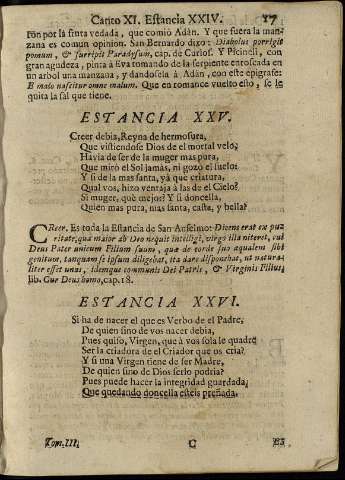 Canto XI. Estancia XXIV. 17
ron por la fruta vedada, que comiò Adàn. Y que fuera la man-
zana es comun opinion. San Bernardo dizo: Diabolus porrigit
pomum, & surripit Paradysum, cap. de Curios. Y Picineli, con
gran agudeza, pinta à Eva tomando de la serpiente enroscada en
un arbol una manzana, y dandosela à Adàn, con este epigrafe:
E malo nascitur omne malum. Que en romance vuelto esto, se le
quita la sal que tiene.
ESTANCIA XXV.
Creer debia, Reyna de hermosura,
Que vistiendose Dios de el mortal velo,
Havia de ser de la muger mas pura,
Que mirò el Sol jamàs, ni gozò el suelo:
Y si de la mas santa, yà que criatura,
Qual vos, hizo ventaja à las de el Cielo?
Si muger, què mejor? Y si doncella,
Quien mas pura, mas santa, casta, y bella?
CReer. Es toda la Estancia de San Anselmo: Dicens erat ex pu-
ritate; qua maior ab Deo nequit intelligi, virgo illa niteret, cui
Deus Pater unicum Filium suum, quem de corde suo æqualem sibi
genitum, tanquam se ipsum diligebat, ita dare disponebat, ut natura-
liter esset unus, idemque communis Dei Patris, & Virginis Filius,
lib. Cur Deus homo, cap. 18.
ESTANCIA XXVI.
Si ha de nacer el que es Verbo de el Padre,
De quien sino de vos nacer debia,
Pues quiso, Virgen, que à vos sola le quadre
Ser la criadora de el Criador que os cria?
Y si una Virgen tiene de ser Madre,
De quien sino de Dios serlo podria?
Pues puede hacer la integridad guardada,
Que quedando doncella esteis preñada.
Tom. III. C Es